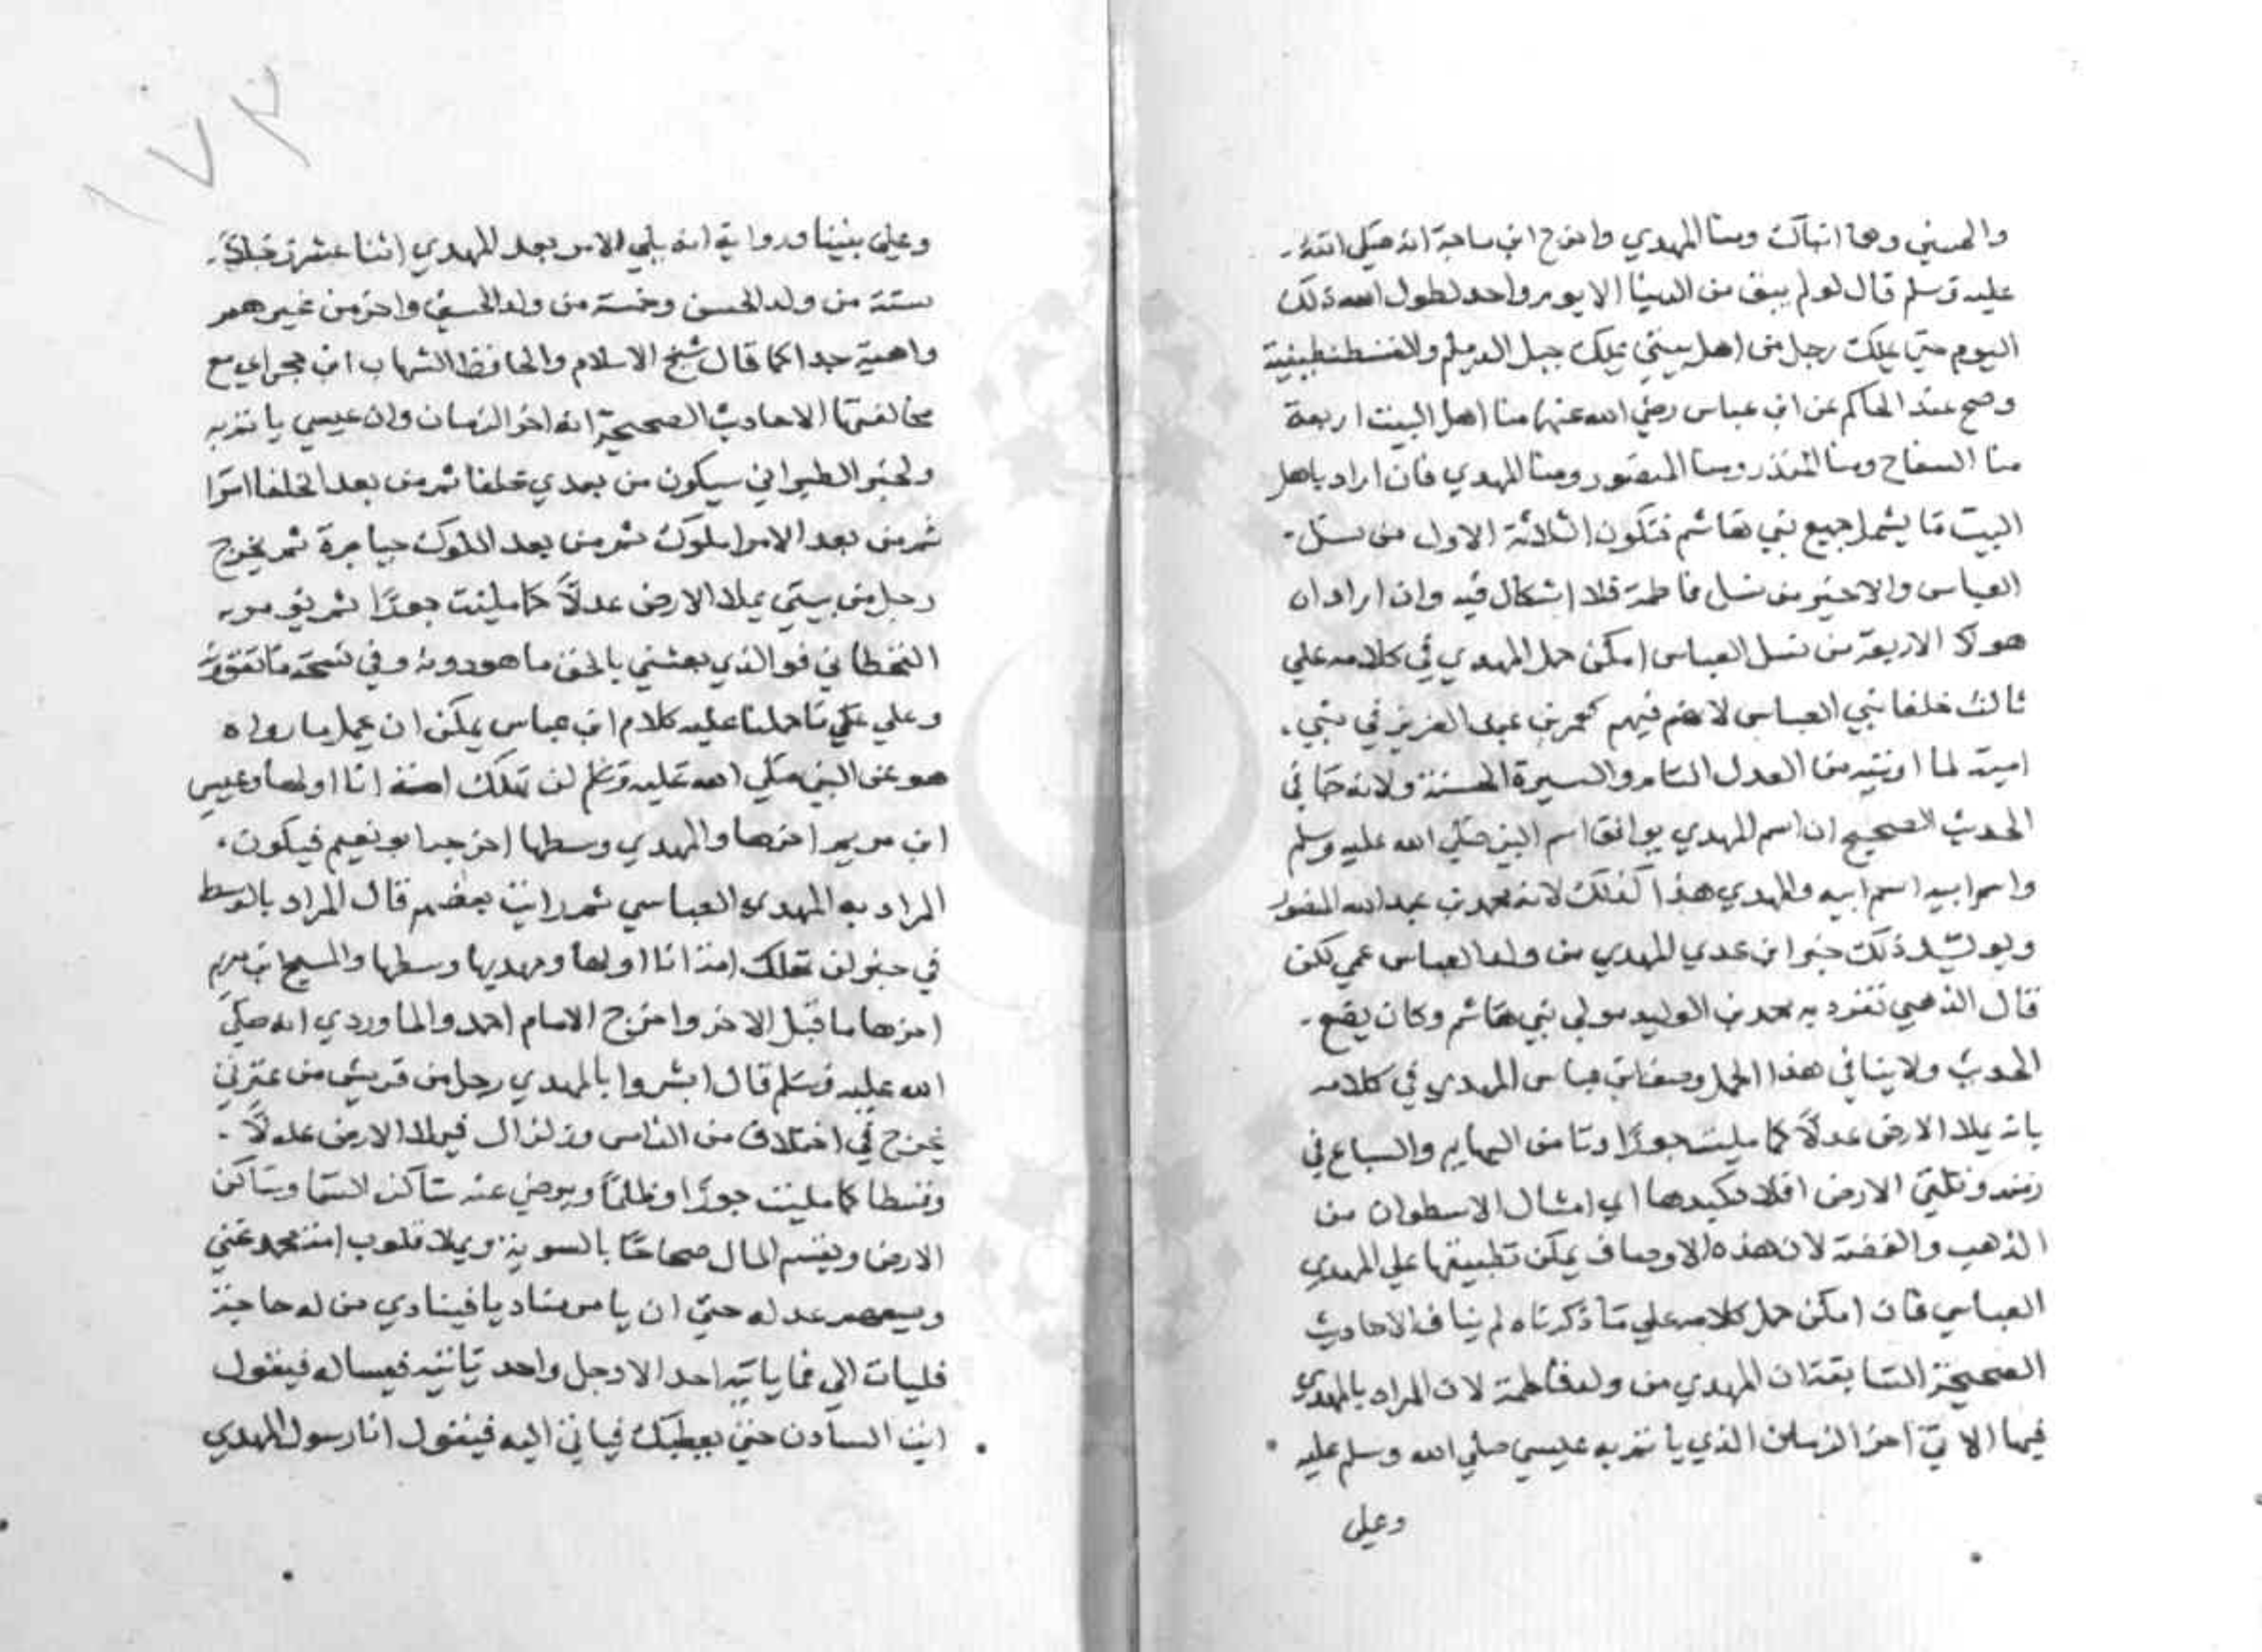 والحسين وهما ابناك ومنا المهدي واخرج ابن ماجة انه صلى الله
عليه وسلم قال لو لم يبق من الدنيا الا يوم واحد لطول الله ذلك
اليوم حتى يملك رجل من اهل بيتي يملك جبل الديلم والقسطنطينية
وصح عند الحاكم عن ابن عباس رضي الله عنهما منا اهل البيت اربعة
منا السفاح ومنا المنذر ومنا المنصور ومنا المهدي فان اراد باهل
البيت ما يشمل جميع بني هاشم فتكون الثلاثة الاول من نسل
العباس والاخير من نسل فاطمة فلا اشكال فيه وان اراد ان
هولاء الاربعة من نسل العباس امكن حمل المهدي في كلامه علي
ثالث خلفا بني العباس لانه فيهم كعمر بن عبد العزيز في بني
امية لما اوتيه من العدل التام والسيرة الحسنة ولانه جا في
الحديث الصحيح ان اسم المهدي يوافق اسم النبي صلي الله عليه وسلم
واسم ابيه اسم ابيه والمهدي هذا كذلك لانه محمد بن عبد الله المنصور
ويويد ذلك خبر ابن عدي المهدي من ولد العباس عمي لكن
قال الذهبي تفرد به محمد بن الوليد مولي بني هاشم وكان يضع
الحديث ولا ينافي هذا الحمل وصف ابن عباس المهدي في كلامه
بانه يملا الارض عدلاً كما مليت جوراً وتامن البهايم والسباع في
زمنه وتلقي الارض افلاذ كبدها اي امثال الاسطوان من
الذهب والفضة لان هذه الاوصاف يمكن تطبيقها علي المهدي
العباسي فان امكن حمل كلامه علي ما ذكرناه لم يناف الاحاديث
الصحيحة السابقة ان المهدي من ولد فاطمة لان المراد بالمهدي
فيها الاتي اخر الزمان الذي ياتم به عيسي صلي الله وسلم عليه
وعلى
١٧٣
وعلى نبينا ورواية انه يلي الامر بعد المهدي اثنا عشر رجلا
ستة من ولد الحسن وخمسة من ولد الحسين واخر من غيرهم
واهية جدا كما قال شيخ الاسلام والحافظ الشهاب ابن حجر اي مع
مخالفتها الاحاديث الصحيحة انه اخر الزمان وان عيسي ياتم به
ولخبر الطبراني سيكون من بعدي خلفا ثم من بعد الخلفا امرا
ثم من بعد الامرا ملوك ثم من بعد الملوك جبابرة ثم يخرج
رجل من بيتي يملا الارض عدلاً كما مليت جوراً ثم يومر
القحطاني فوالذي بعثني بالحق ما هو دونه وفي نسخة ما تقوونه
وعلي ما حملنا عليه كلام ابن عباس يمكن ان يحمل ما رواه
هو عن النبي صلي الله عليه وسلم لن تهلك امة انا اولها وعيسي
ابن مريم اخرها والمهدي وسطها اخرجه ابو نعيم فيكون
المراد به المهدي العباسي ثم رايت بعضهم قال المراد بالوسط
في خبر لن تهلك امة انا اولها ومهديها وسطها والمسيح ابن مريم
اخرها ما قبل الاخر واخرج الامام احمد والماوردي انه صلى
الله عليه وسلم قال ابشروا بالمهدي رجل من قريش من عترتي
يخرج في اختلاف من الناس وزلزال فيملا الارض عدلاً
وقسطا كما مليت جوراً وظلماً ويرضي عنه ساكن السما وساكن
الارض ويقسم المال صحاحاً بالسوية ويملا قلوب امة محمد غني
ويسعهم عدله حتي ان يامر مناديا فينادي من له حاجة
فليات الي فما ياتيه احد الا رجل واحد ياتيه فيساله فيقول
ايت السادن حتي يعطيك فياتي اليه فيقول انا رسول المهدي